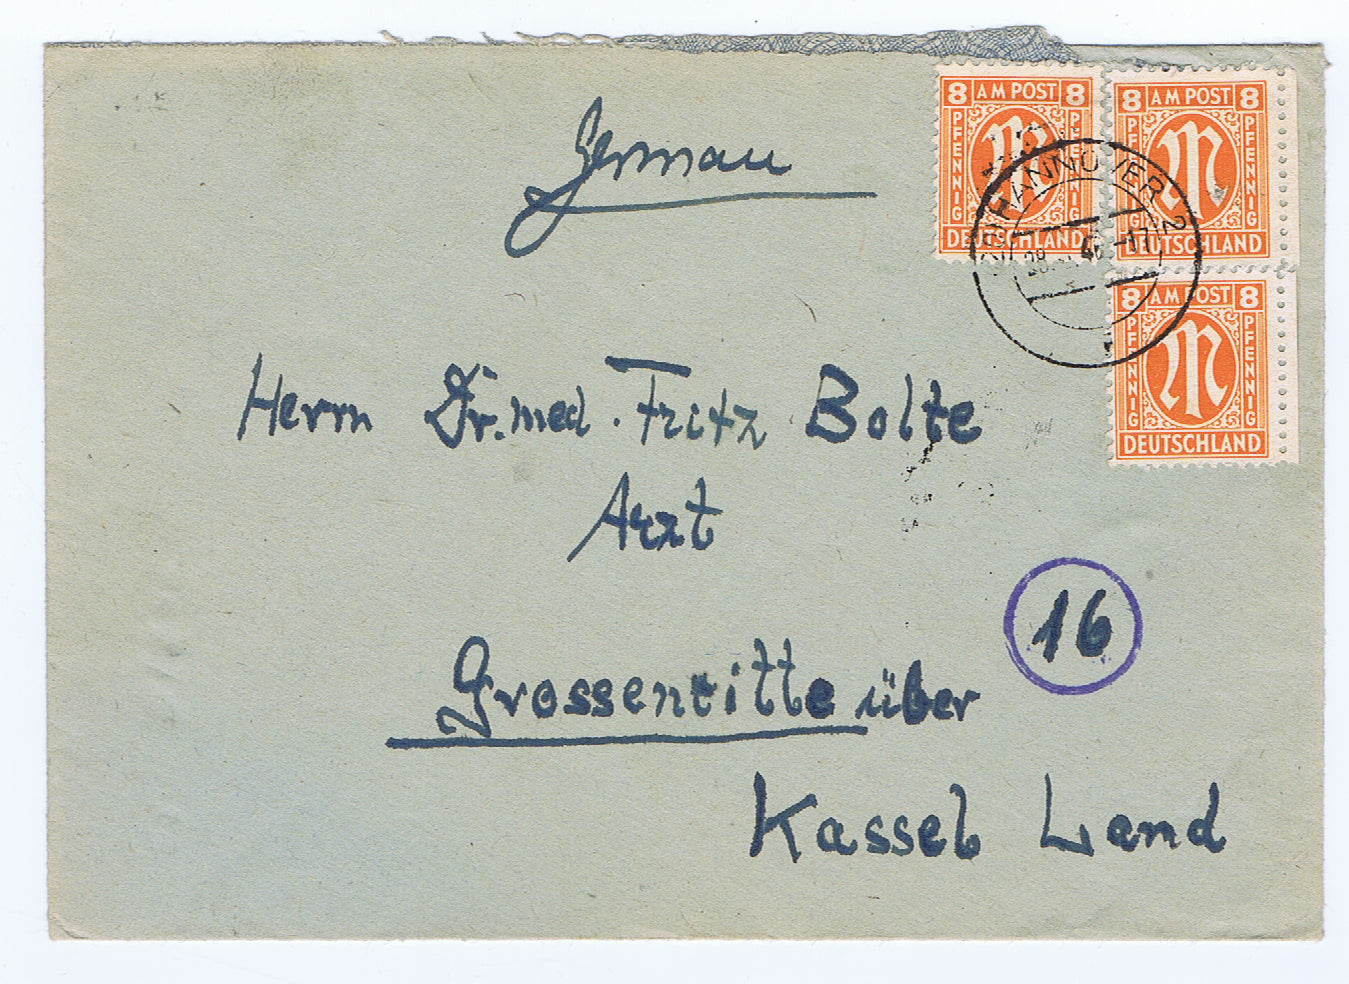 German
8 AM POST 8
PFENNIG PFENNIG
DEUTSCHLAND
8 AM POST 8
PFENNIG PFENNIG
DEUTSCHLAND
HANNOVER 2
8 AM POST 8
PFENNIG PFENNIG
DEUTSCHLAND
Herrn Dr. med. Fritz Bolte
Arzt
16
Grossenritte über
Kassel Land